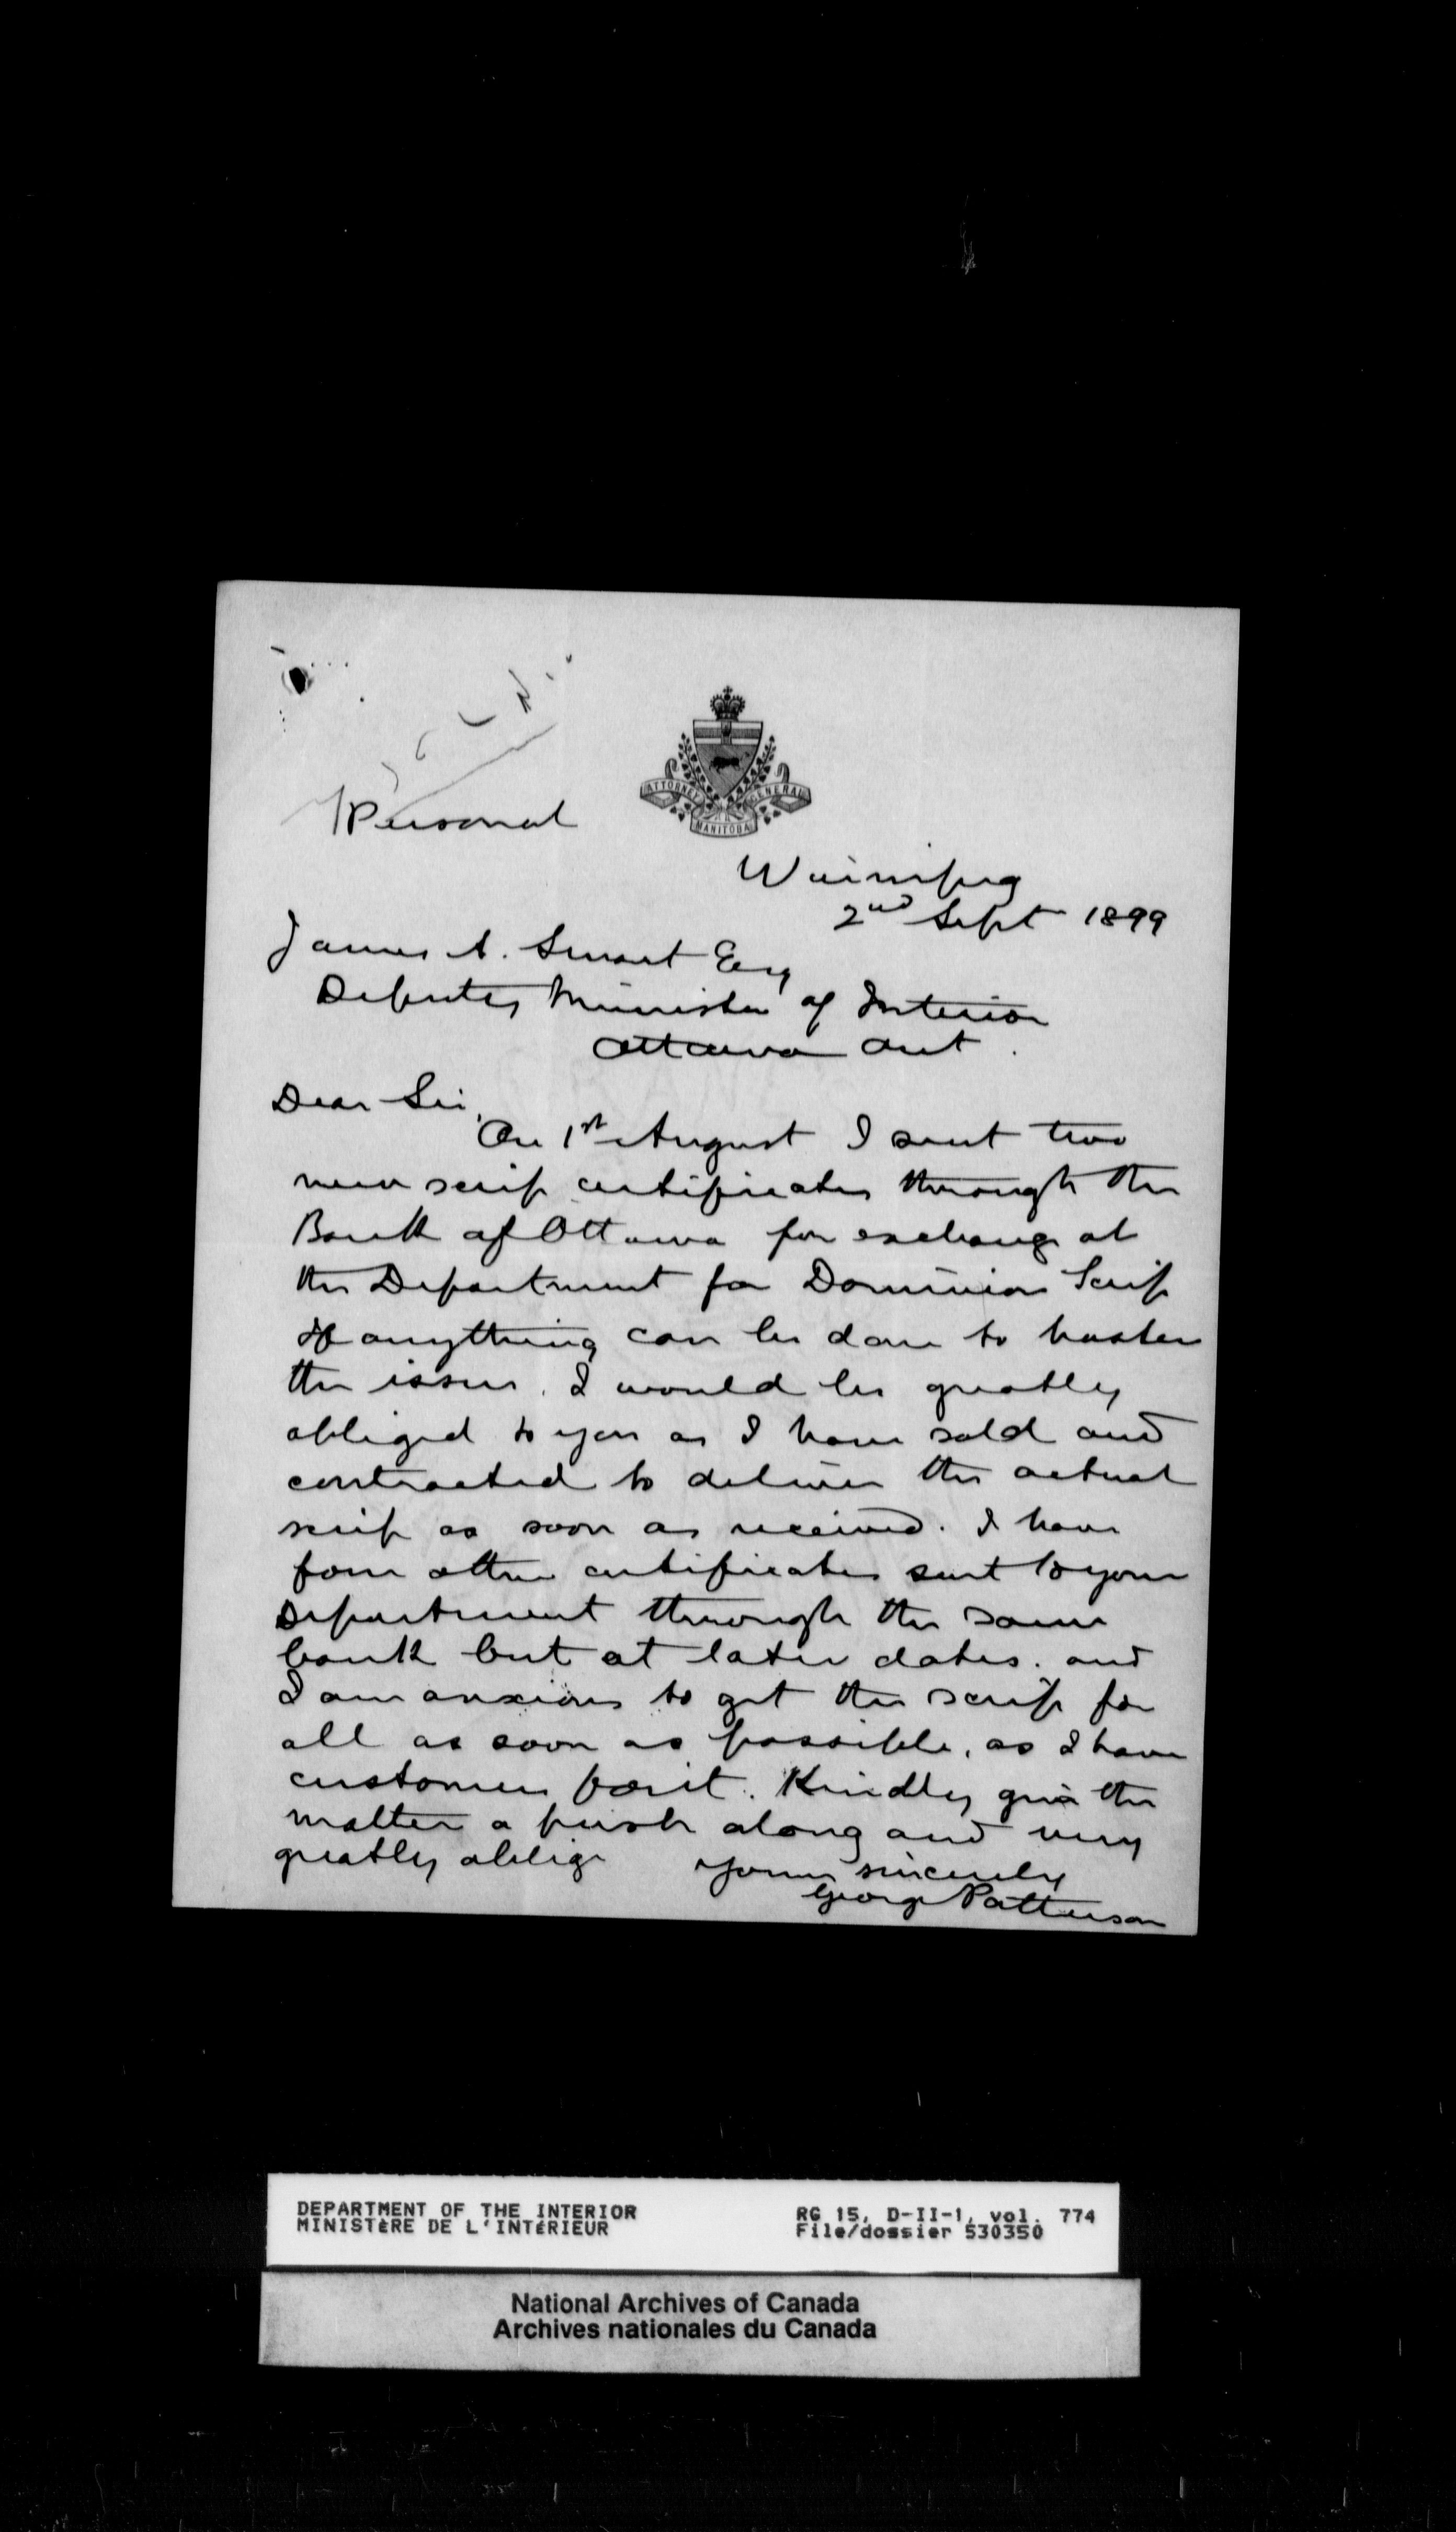 Personal
ATTORNEY GENERAL
MANITOBA
Winnipeg
2nd Sept 1899
James A. Smart Esq
Deputy Minister of Interior
Ottawa Ont.
Dear Sir,
On 1st August I sent two
new scrip certificates through the
Bank of Ottawa for exchange at
the Department for Dominion Scrip
If anything can be done to hasten
the issue, I would be greatly
obliged to you as I have sold and
contracted to deliver the actual
scrip as soon as received. I have
four other certificates sent to your
Department through the same
bank but at later dates. and
I am anxious to get the scrip for
all as soon as possible, as I have
customers for it. Kindly give the
matter a push along and very
greatly oblige Yours sincerely
George Patterson
DEPARTMENT OF THE INTERIOR RG 15, D-II-1, vol. 774
MINISTÈRE DE L'INTÉRIEUR File/dossier 530350
National Archives of Canada
Archives nationales du Canada